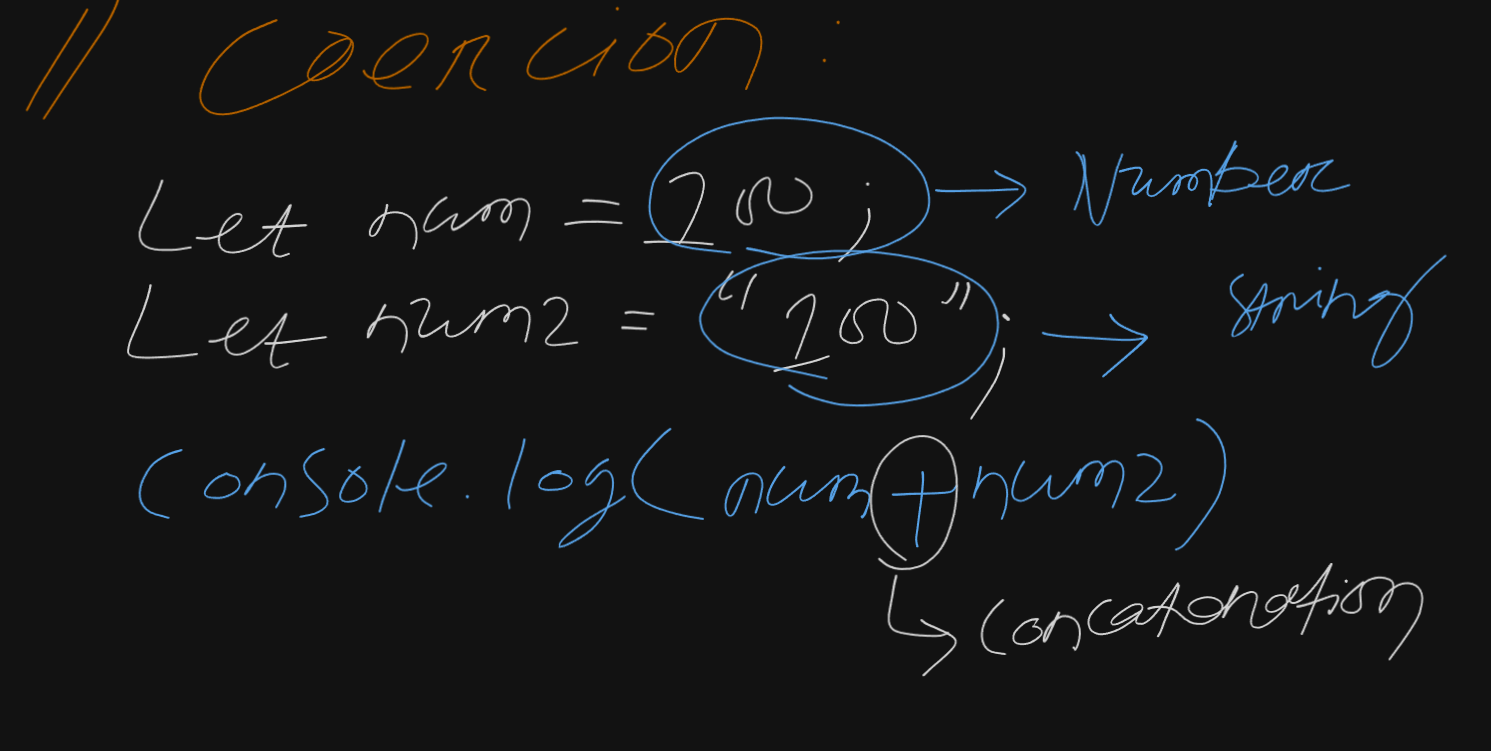 // Coercion:
Let num = 100; → Number
Let num2 = "100"; → String
Console.log(num+num2)
↳ Concatenation